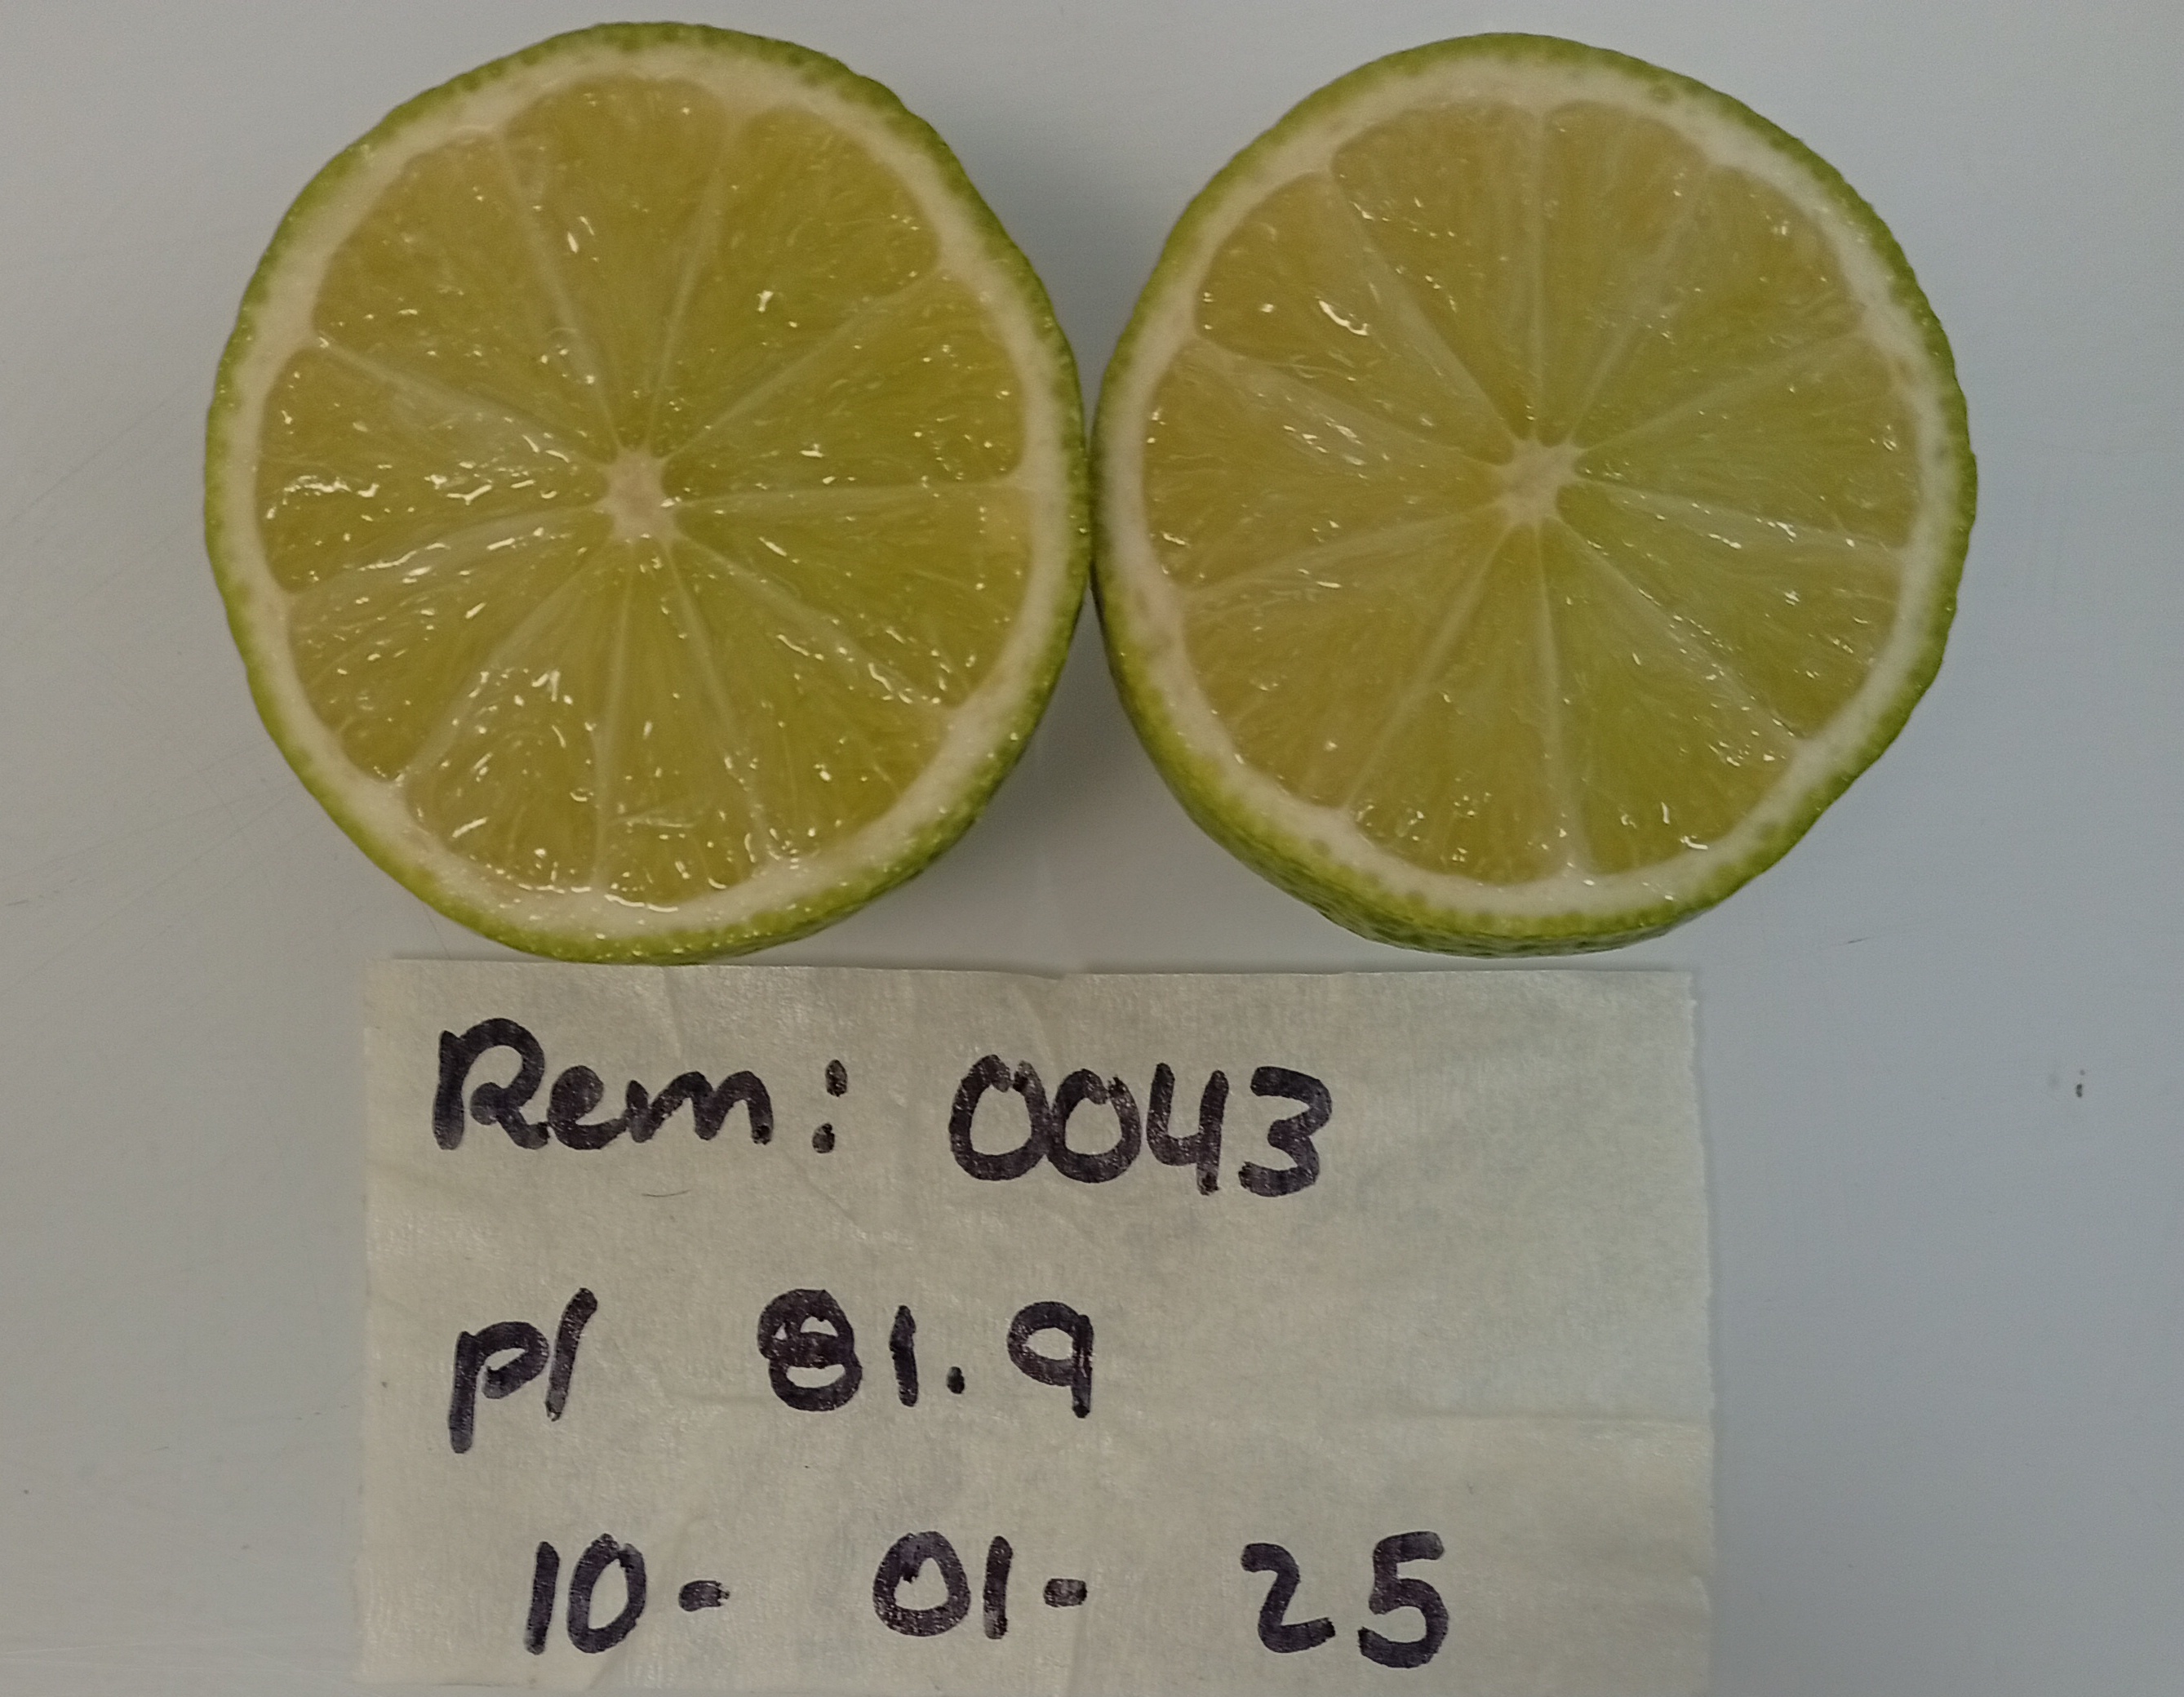 Rem: 0043
pl 81.9
10- 01- 25